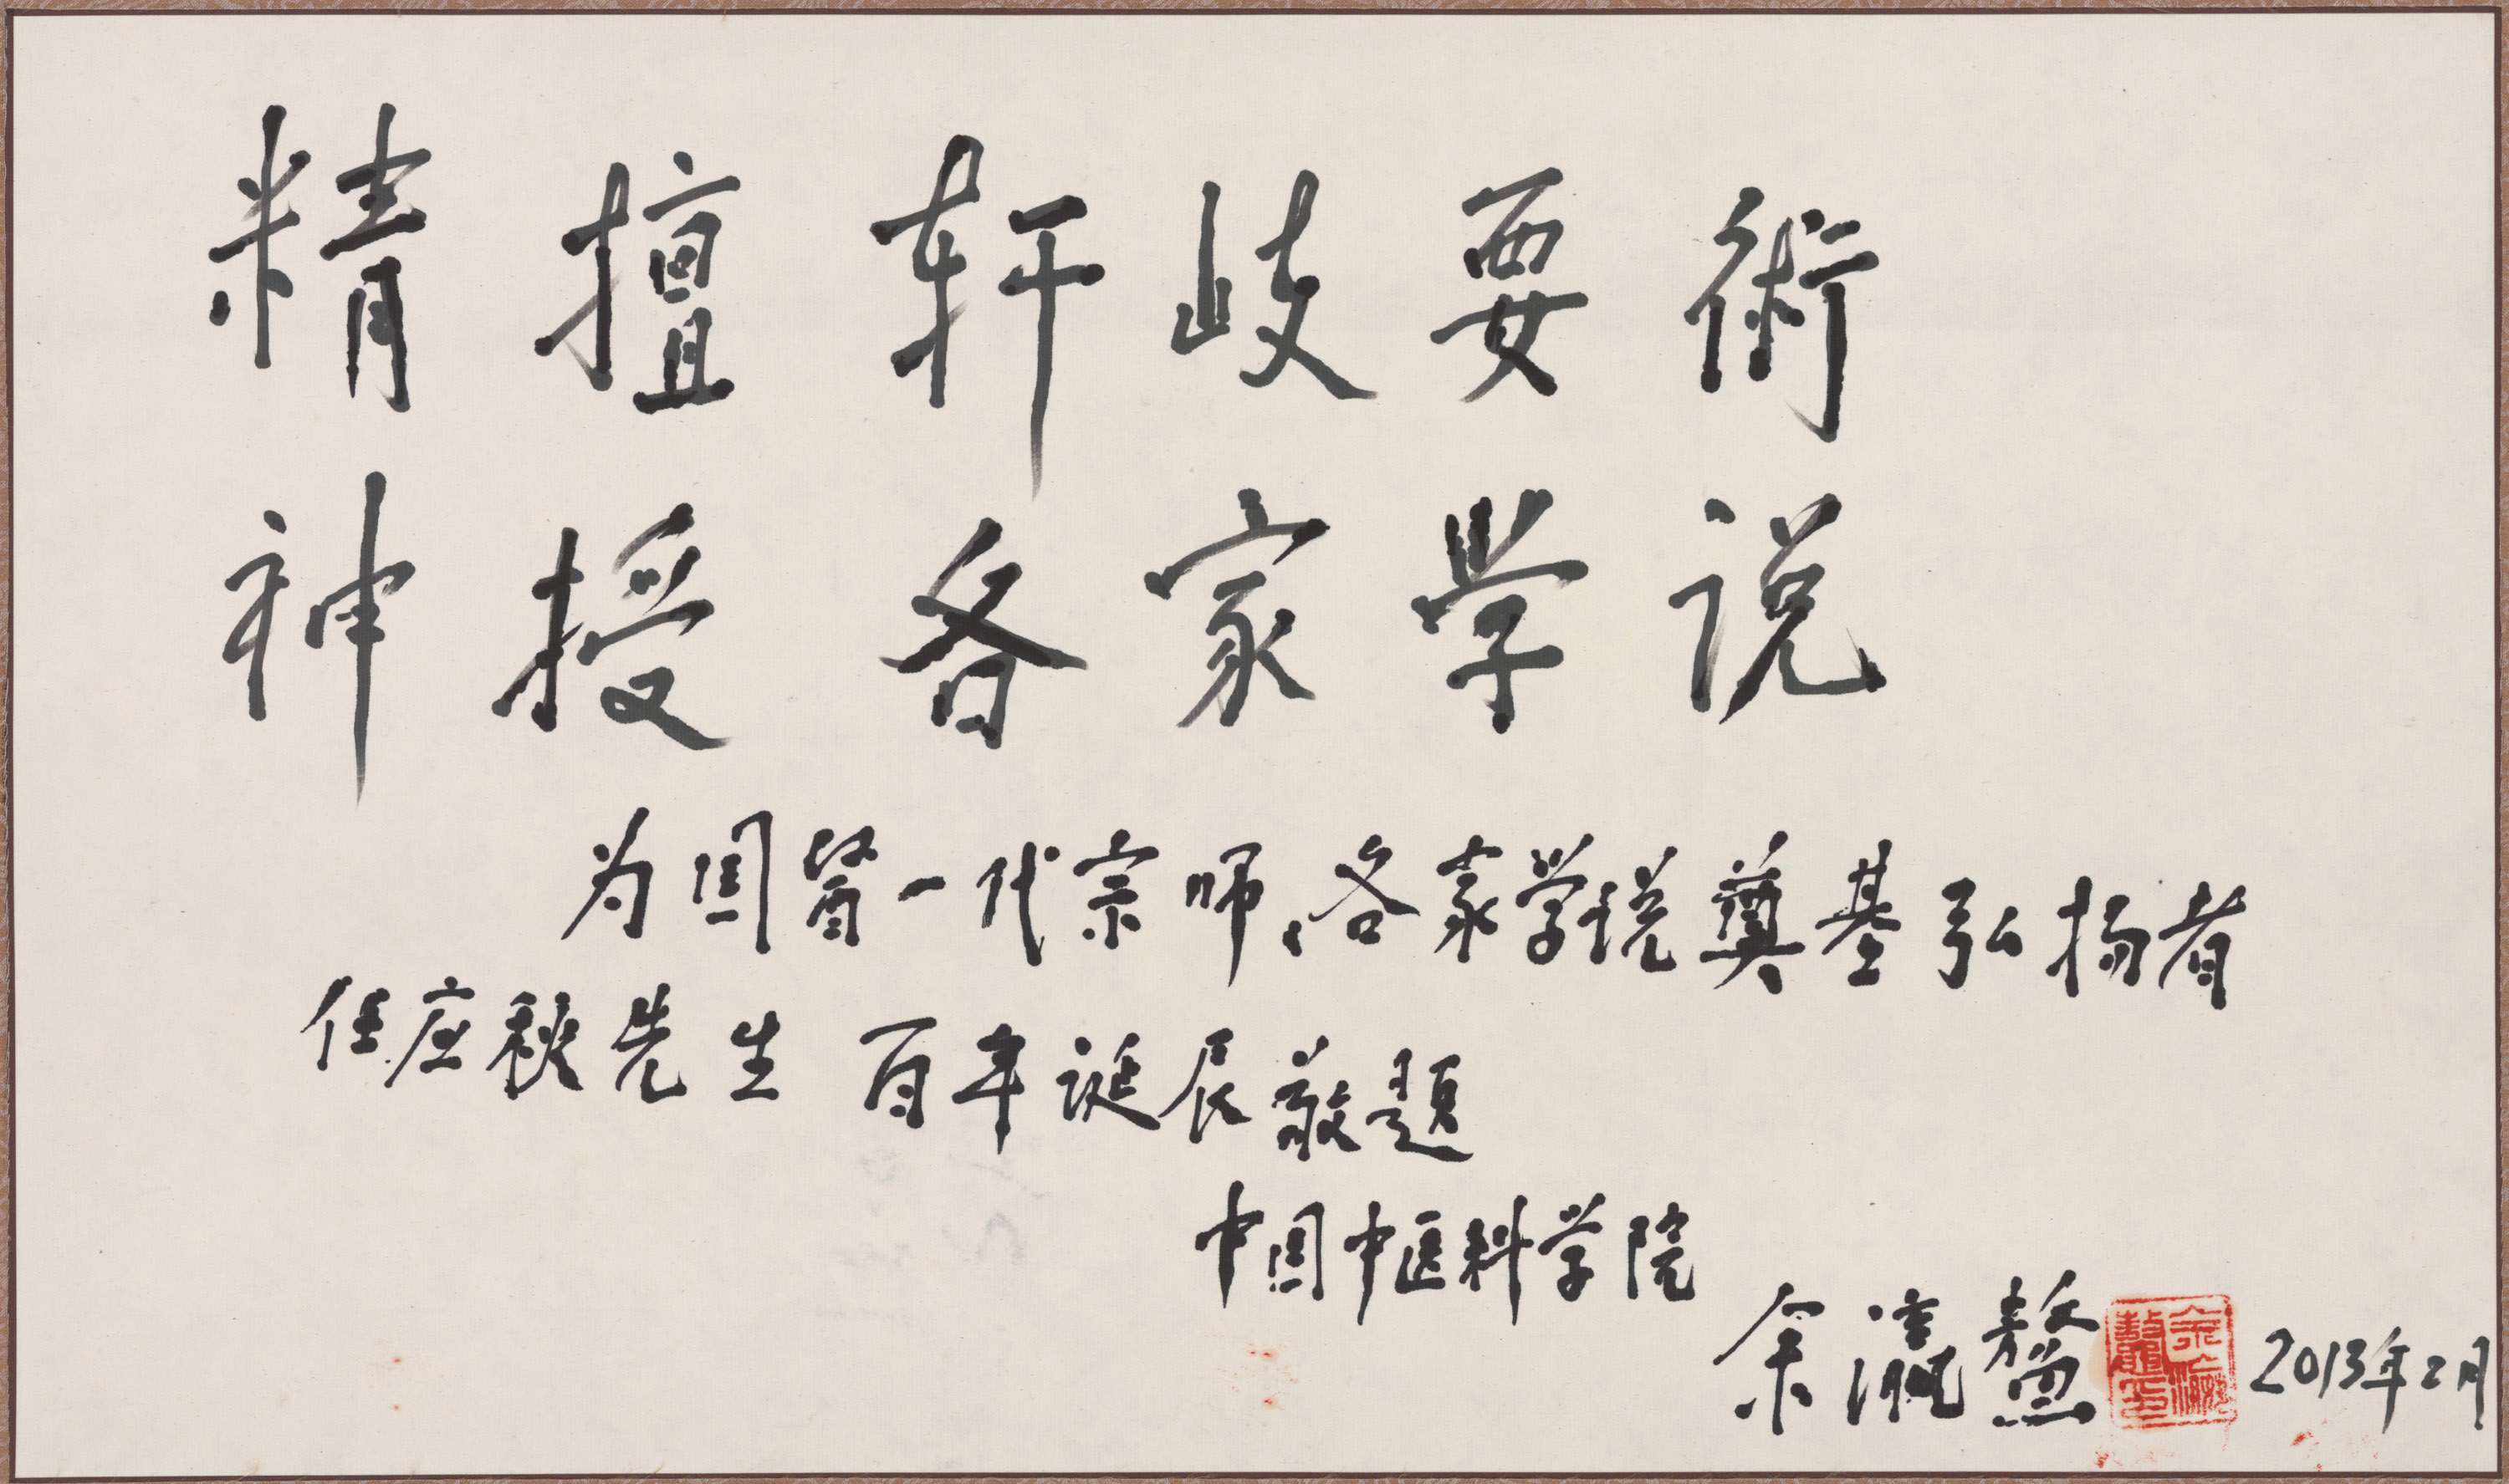 精擅轩歧要術
神授各家学说
为国医一代宗师、各家学说奠基弘扬者
任应秋先生 百年诞辰敬题
中国中医科学院
余瀛鳌 2013年2月
余瀛鳌印